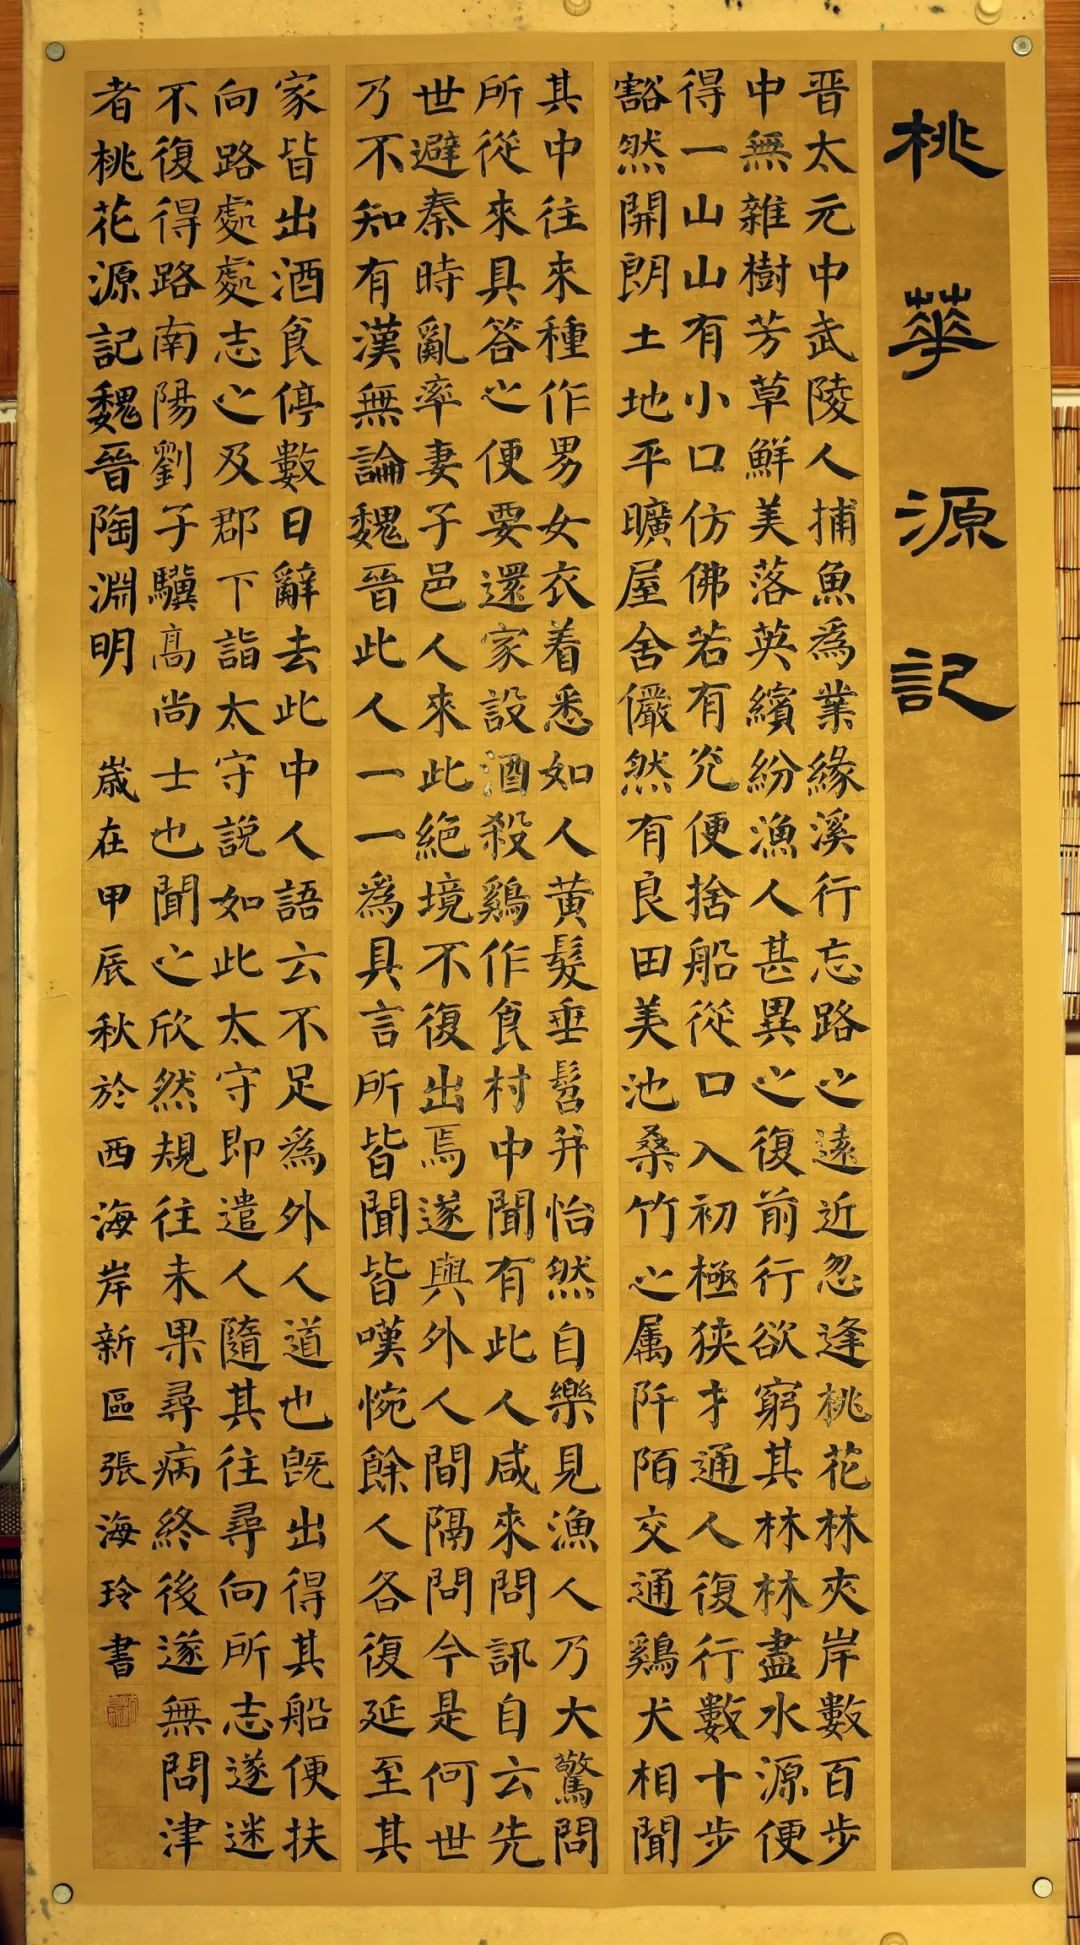 桃華源記
晋太元中武陵人捕魚為業緣溪行忘路之遠近忽逢桃花林夾岸數百步
中無雜樹芳草鮮美落英繽紛漁人甚異之復前行欲窮其林林盡水源便
得一山山有小口仿佛若有光便捨船從口入初極狭才通人復行數十步
豁然開朗土地平曠屋舍儼然有良田美池桑竹之属阡陌交通鷄犬相聞
其中往來種作男女衣着悉如人黄髮垂髫并怡然自樂見漁人乃大驚問
所從來具答之便要還家設酒殺鷄作食村中聞有此人咸來問訊自云先
世避秦時亂率妻子邑人來此絕境不復出焉遂與外人間隔問今是何世
乃不知有漢無論魏晉此人一一為具言所皆聞皆嘆惋餘人各復延至其
家皆出酒食停數日辭去此中人語云不足為外人道也既出得其船便扶
向路處處志之及郡下詣太守說如此太守即遣人隨其往尋向所志遂迷
不復得路南陽劉子驥高尚士也聞之欣然規往未果尋病終後遂無問津
者桃花源記魏晉陶淵明 歲在甲辰秋於西海岸新區張海玲書